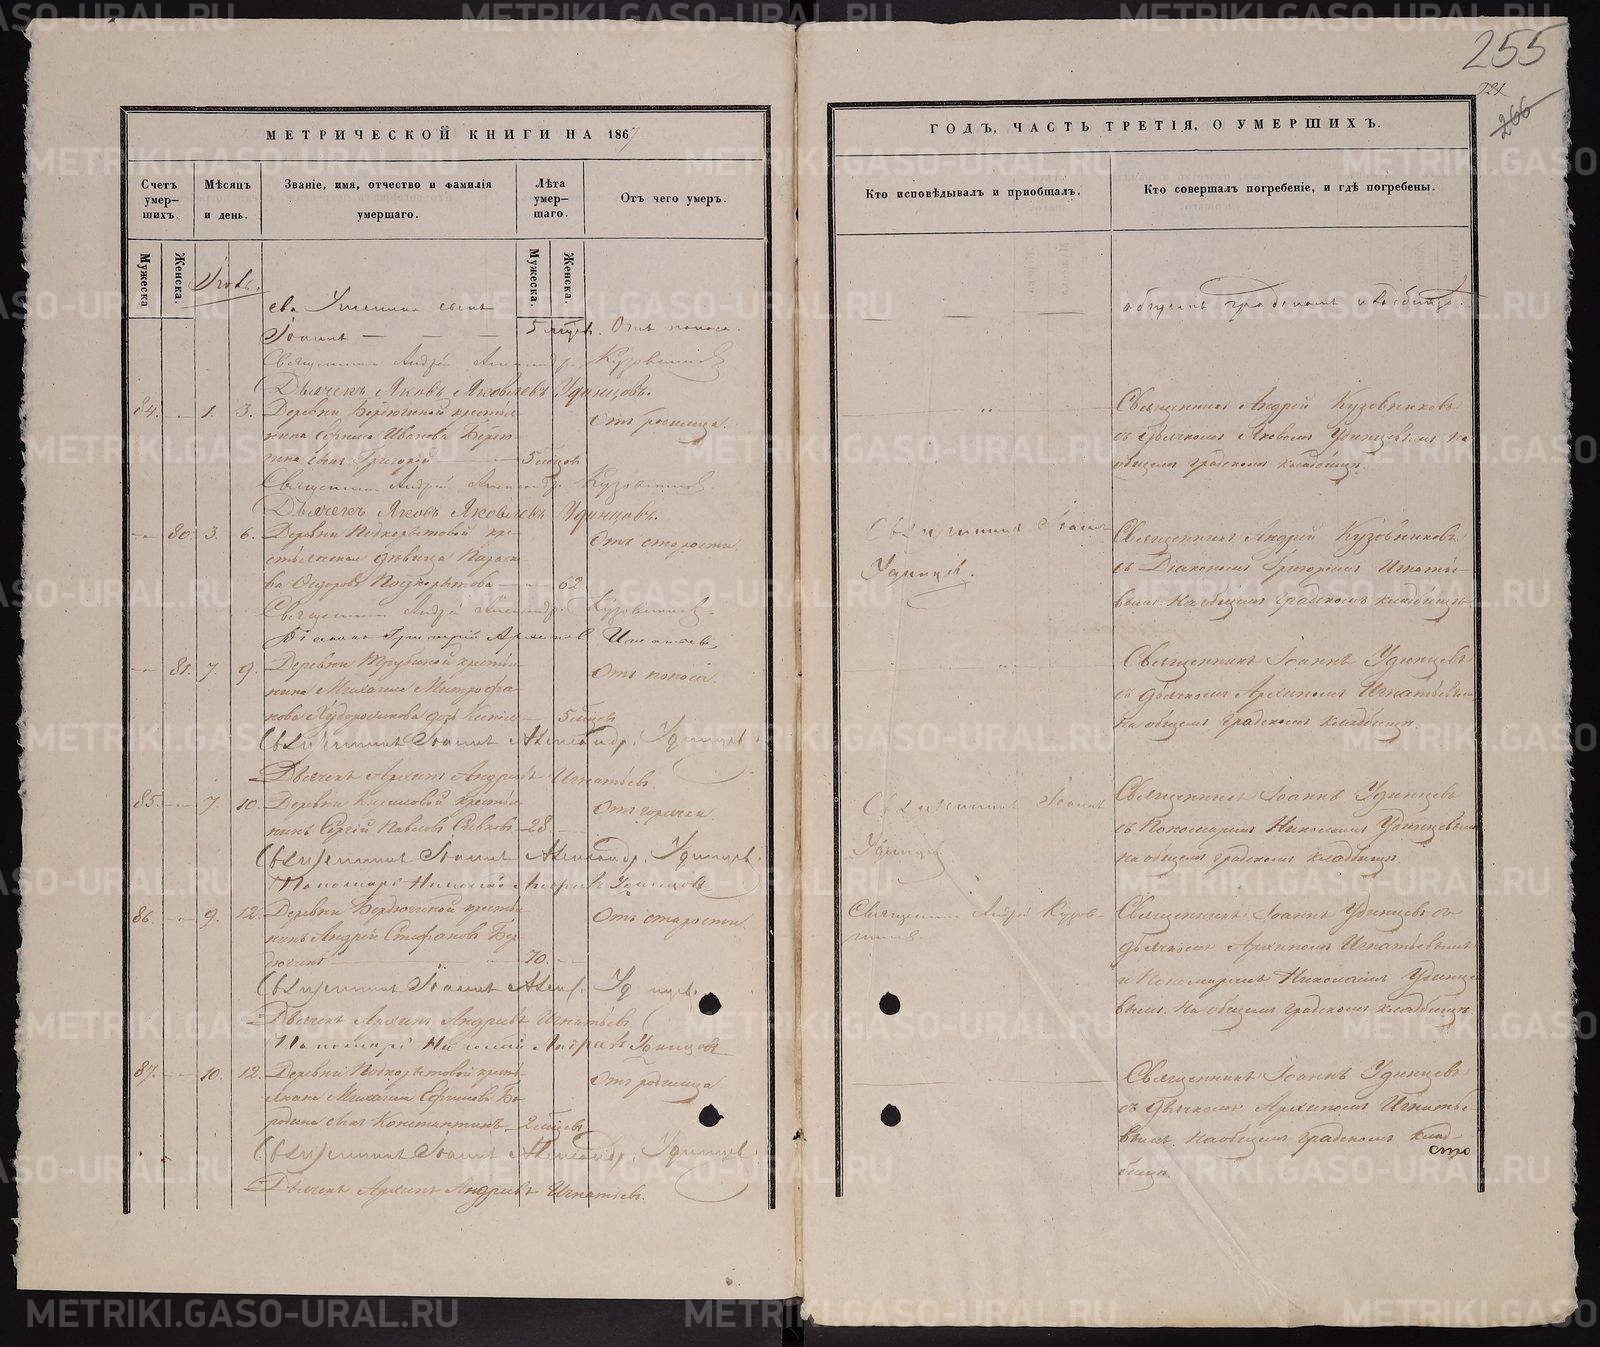 255
231
266
МЕТРИЧЕСКОЙ КНИГИ НА 1867
ГОДЪ, ЧАСТЬ ТРЕТІЯ, О УМЕРШИХЪ.
Счетъ умер-шихъ.
Мѣсяцъ и день.
Званіе, имя, отчество и фамилія умершаго.
Лѣта умер-шаго.
Отъ чего умеръ.
Кто исповѣдывалъ и приобщалъ.
Кто совершалъ погребеніе, и гдѣ погребены.
Мужеска
Женска.
Мужеска.
Женска.
сынъ
Іоаннъ — — — 5 мѣсяц. Отъ поноса.
общемъ градскомъ кладбищѣ.
Священникъ Андрей Александр. Кузовниковъ
Дьячекъ Яковъ Яковлевъ Удинцовъ.
84. — 1. 3. Деревни крестья-
нина Иванова
сынъ Григорій — 5 мѣсяц.
Отъ родимца.
Священникъ Андрей Кузовниковъ
съ дьячкомъ Яковомъ Удинцевымъ на
общемъ градскомъ кладбищѣ.
Священникъ Андрей Александр. Кузовниковъ
Дьячекъ Яковъ Яковлевъ Удинцовъ.
— 80. 3. 6. Деревни Подкорытовой кре-
стьянская дѣвица Параске-
ва Ѳедорова Подкорытова — 62
Отъ старости
Священникъ Іоаннъ
Удинцевъ.
Священникъ Андрей Кузовниковъ
съ Діакономъ Григоріемъ Игнатье-
вымъ на общемъ градскомъ кладбищѣ
Священникъ Андрей Александр. Кузовниковъ
Игнатьевъ
— 81. 7. 9. Деревни Трубиной крестья-
нина Михаила Митрофа-
нова дочь — 5 мѣсяц.
Отъ поноса.
Священникъ Іоаннъ Удинцевъ
съ дьячкомъ Архипомъ Игнатьевымъ
на общемъ градскомъ кладбищѣ.
Священникъ Іоаннъ Александр. Удинцевъ.
Дьячекъ Архипъ Андреевъ Игнатьевъ
85. — 7. 10. Деревни крестья-
нинъ Сергій Павловъ — 28. —
Отъ горячки
Священникъ Іоаннъ
Удинцевъ
Священникъ Іоаннъ Удинцевъ
съ Пономаремъ Николаемъ Удинцевымъ
на общемъ градскомъ кладбищѣ.
Священникъ Іоаннъ Александр. Удинцевъ.
Пономарь Николай Андреевъ Удинцовъ
86. — 9. 12. Деревни Бердюгиной крестья-
нинъ Андрей Стефановъ Бер-
дюгинъ — 70. —
Отъ старости.
Священникъ Андрей Кузов-
никовъ.
Священникъ Іоаннъ Удинцевъ съ
дьячкомъ Архипомъ Игнатьевымъ
и Пономаремъ Николаемъ Удинце-
вымъ. На общемъ градскомъ кладбищѣ
Священникъ Іоаннъ Алекс. Удинцевъ.
Дьячекъ Архипъ Андреевъ Игнатьевъ
Пономарь Николай Андреевъ Удинцовъ
87. — 10. 12. Деревни Подкорытовой кресть-
янина Михаила
сынъ Константинъ — 2 мѣсяц.
Отъ родимца
Священникъ Іоаннъ Удинцевъ
съ дьячкомъ Архипомъ Игнатье-
вымъ. На общемъ градскомъ клад-
бищѣ.
Священникъ Іоаннъ Александр. Удинцевъ.
Дьячекъ Архипъ Андреевъ Игнатьевъ.
METRIKI.GASO-URAL.RU